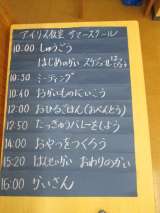 アイリス教室 サマースクール
10:00 しゅうごう
はじめのかい
10:30 ミーティング
10:40 おかいものにいこう
12:00 おひるごはん(おべんとう)
12:50 たっきゅうバレーをしよう
14:00 おやつをつくろう
15:20 はんせいかい おわりのかい
16:00 かいさん